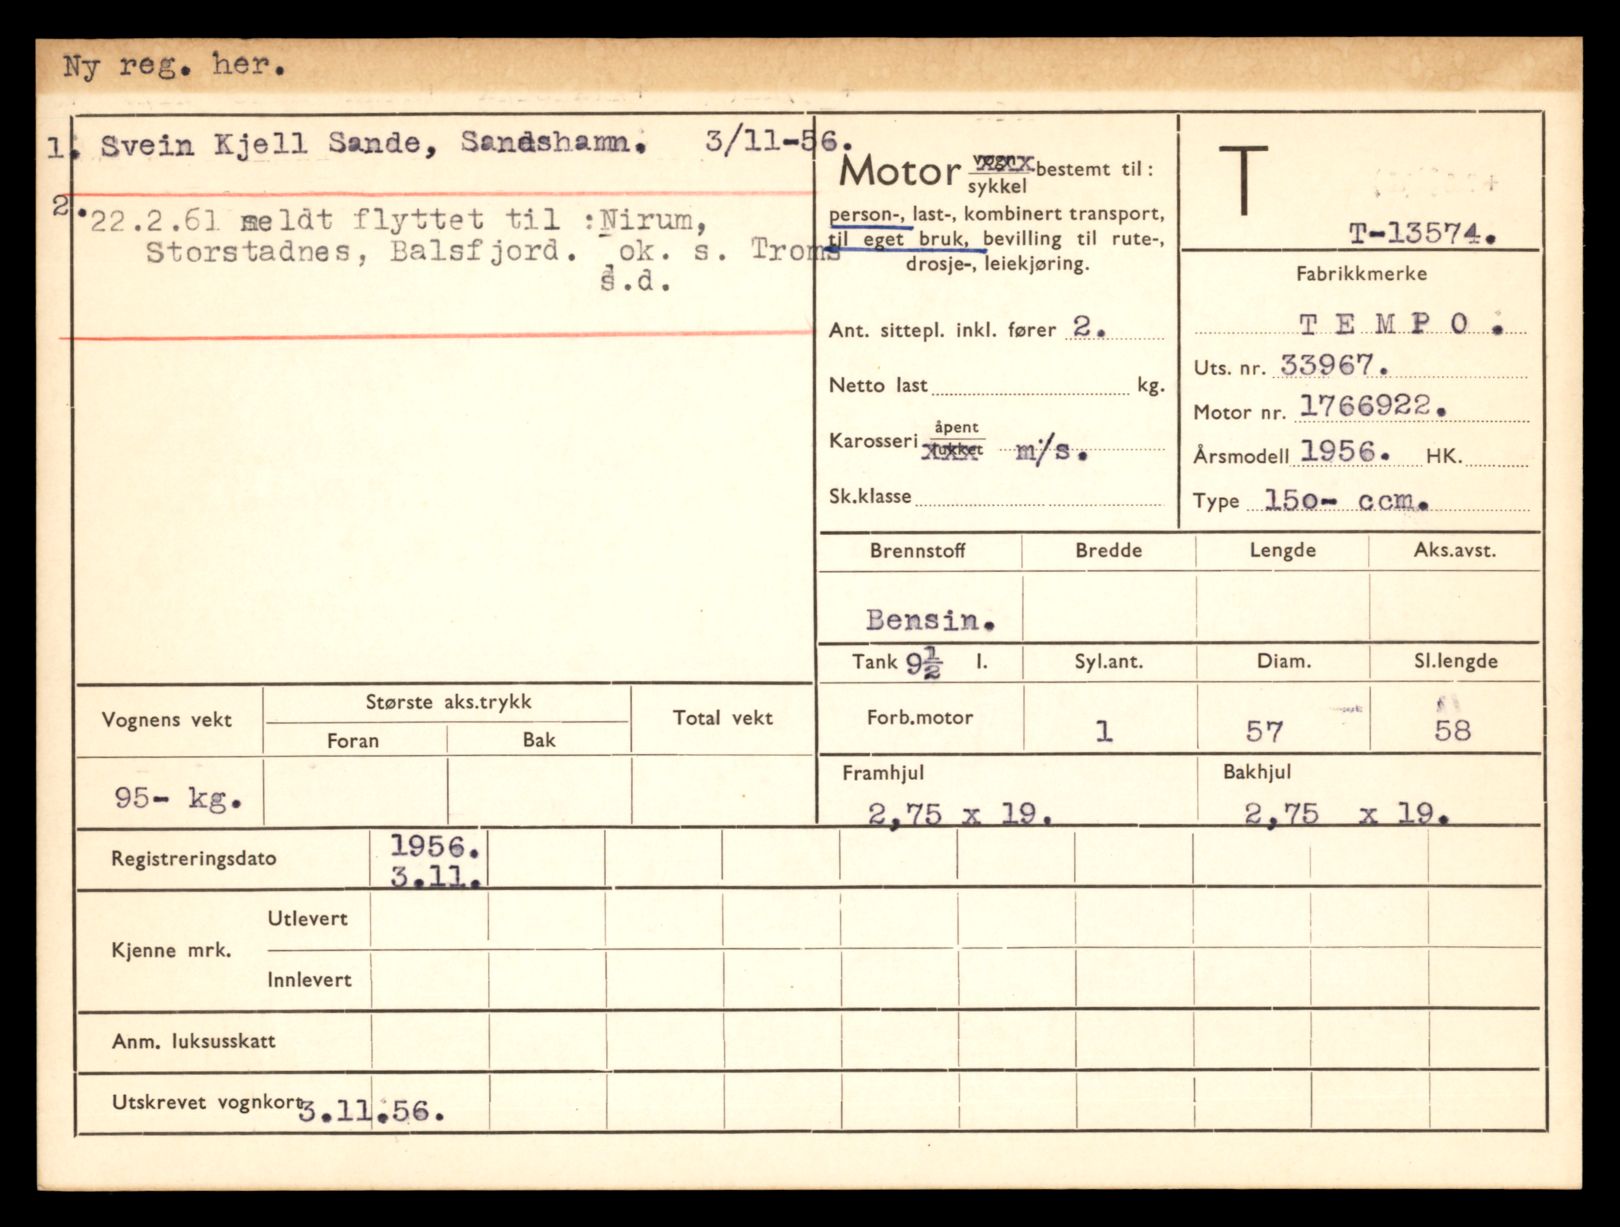 Ny reg. her.
1. Svein Kjell Sande, Sandshamn. 3/11-56.
2. 22.2.61 meldt flyttet til :Nirum,
Storstadnes, Balsfjord. ok. s. Troms
s.d.
Motor vogn bestemt til :
sykkel
person-, last-, kombinert transport,
til eget bruk, bevilling til rute-,
drosje-, leiekjøring.
Ant. sittepl. inkl. fører 2.
Netto last kg.
Karosseri åpent m/s.
lukket
Sk.klasse
T
T-13574.
Fabrikkmerke
T E M P O .
Uts. nr. 33967.
Motor nr. 1766922.
Årsmodell 1956. HK.
Type 150- ccm.
Brennstoff Bredde Lengde Aks.avst.
Bensin.
Tank 9½ l. Syl.ant. Diam. Sl.lengde
Forb.motor 1 57 58
Framhjul Bakhjul
2,75 x 19. 2,75 x 19.
Vognens vekt Største aks.trykk Total vekt
Foran Bak
95- kg.
Registreringsdato 1956.
3.11.
Kjenne mrk. Utlevert
Innlevert
Anm. luksusskatt
Utskrevet vognkort 3.11.56.